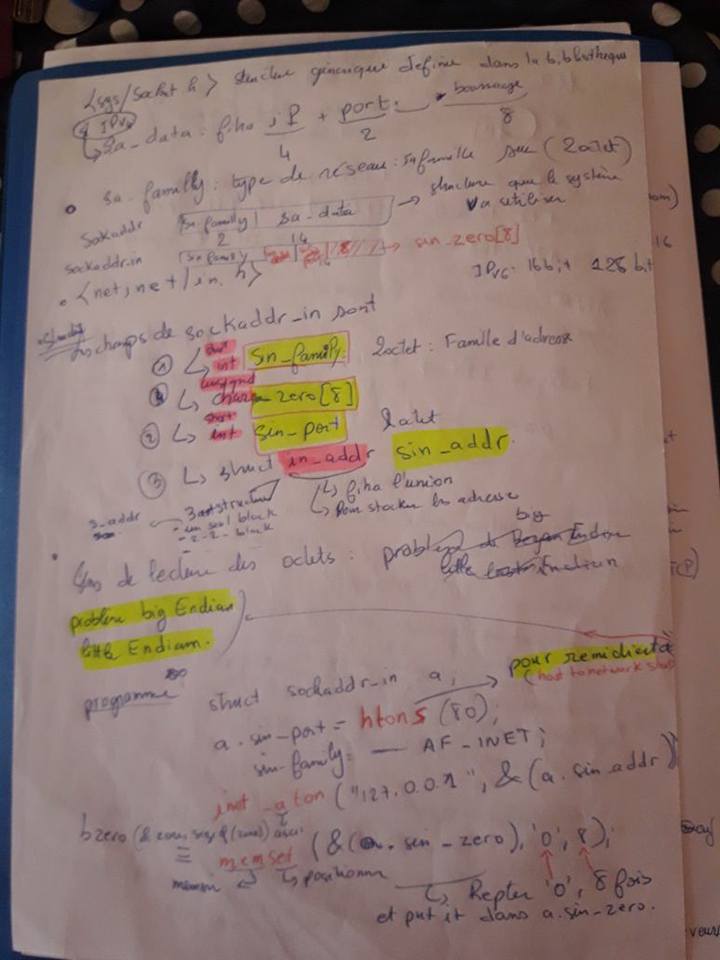 <sys/socket h> structure générique définie dans la bibliothèque
si IPv4
sa_data : fiha IP + port + bourrage
4 2 8
• sa_familly : type de réseau : sur (2 octet)
Sokaddr sa_familly | sa_data → structure que le système va utiliser
2 14
sockaddr_in sin family 8 → sin_zero[8]
• <netinet/in. h> IPv6 128 bit
Les champs de sockaddr_in sont
① ↳ short int sin_family : 2octet : Famille d'adresse
④ ↳ unsigned char zero[8]
② ↳ short int sin_port 2octet
③ ↳ struct in_addr sin_addr.
↳ fiha l'union
↳ Pour stocker les adresse
s_addr 3 structure
- un seul block
- 2 - 2 - block
• Sens de lecture des octets :
problème big Endian
little Endian.
pour remédier à
(host to network short
programme struct sockaddr_in a;
a. sin_port = htons (80);
sin_family = AF_INET;
inet_aton ("127.0.0.1", & (a. sin_addr)
bzero
≡ memset (&(a. sin_zero), '0', 8);
↳ positionne
↳ Repter '0', 8 fois
et put it dans a.sin_zero.